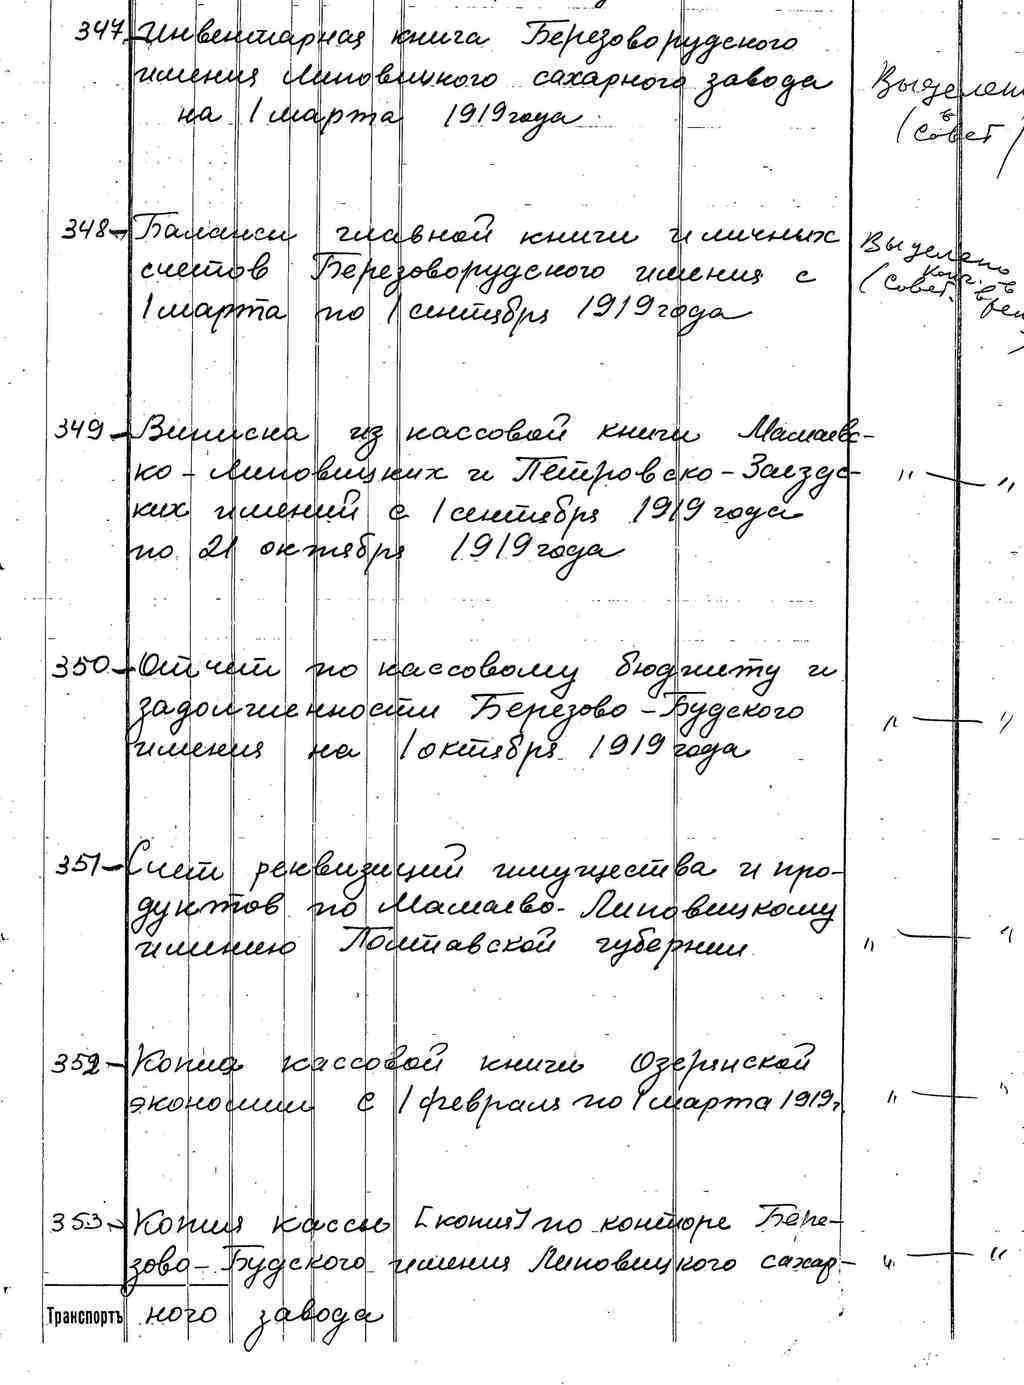 347 Инвентарная книга Березоворудского
имения Липовицкого сахарного завода
на 1 марта 1919 года
Выделен
в
(Совет
348 - Балансы главной книги и личных
счетов Березоворудского имения с
1 марта по 1 сентября 1919 года
Выделено
(Совет. в
349 - Выписка из кассовой книги Мамаевс-
ко-Липовицких и Петровско-Заездс-
ких имений с 1 сентября 1919 года
по 21 октября 1919 года
" — "
350 - Отчет по кассовому бюджету и
задолженности Березово-Будского
имения на 1 октября 1919 года
" — "
351 - Счет реквизиций имущества и про-
дуктов по Мамаево-Липовицкому
имению Полтавской губернии
" — "
352 - Копия кассовой книги Озерянской
экономии с 1 февраля по 1 марта 1919г.
" — "
353 - Копия кассы [копия] по конторе Бере-
зово-Будского имения Липовицкого сахар-
" — "
Транспортъ ного завода